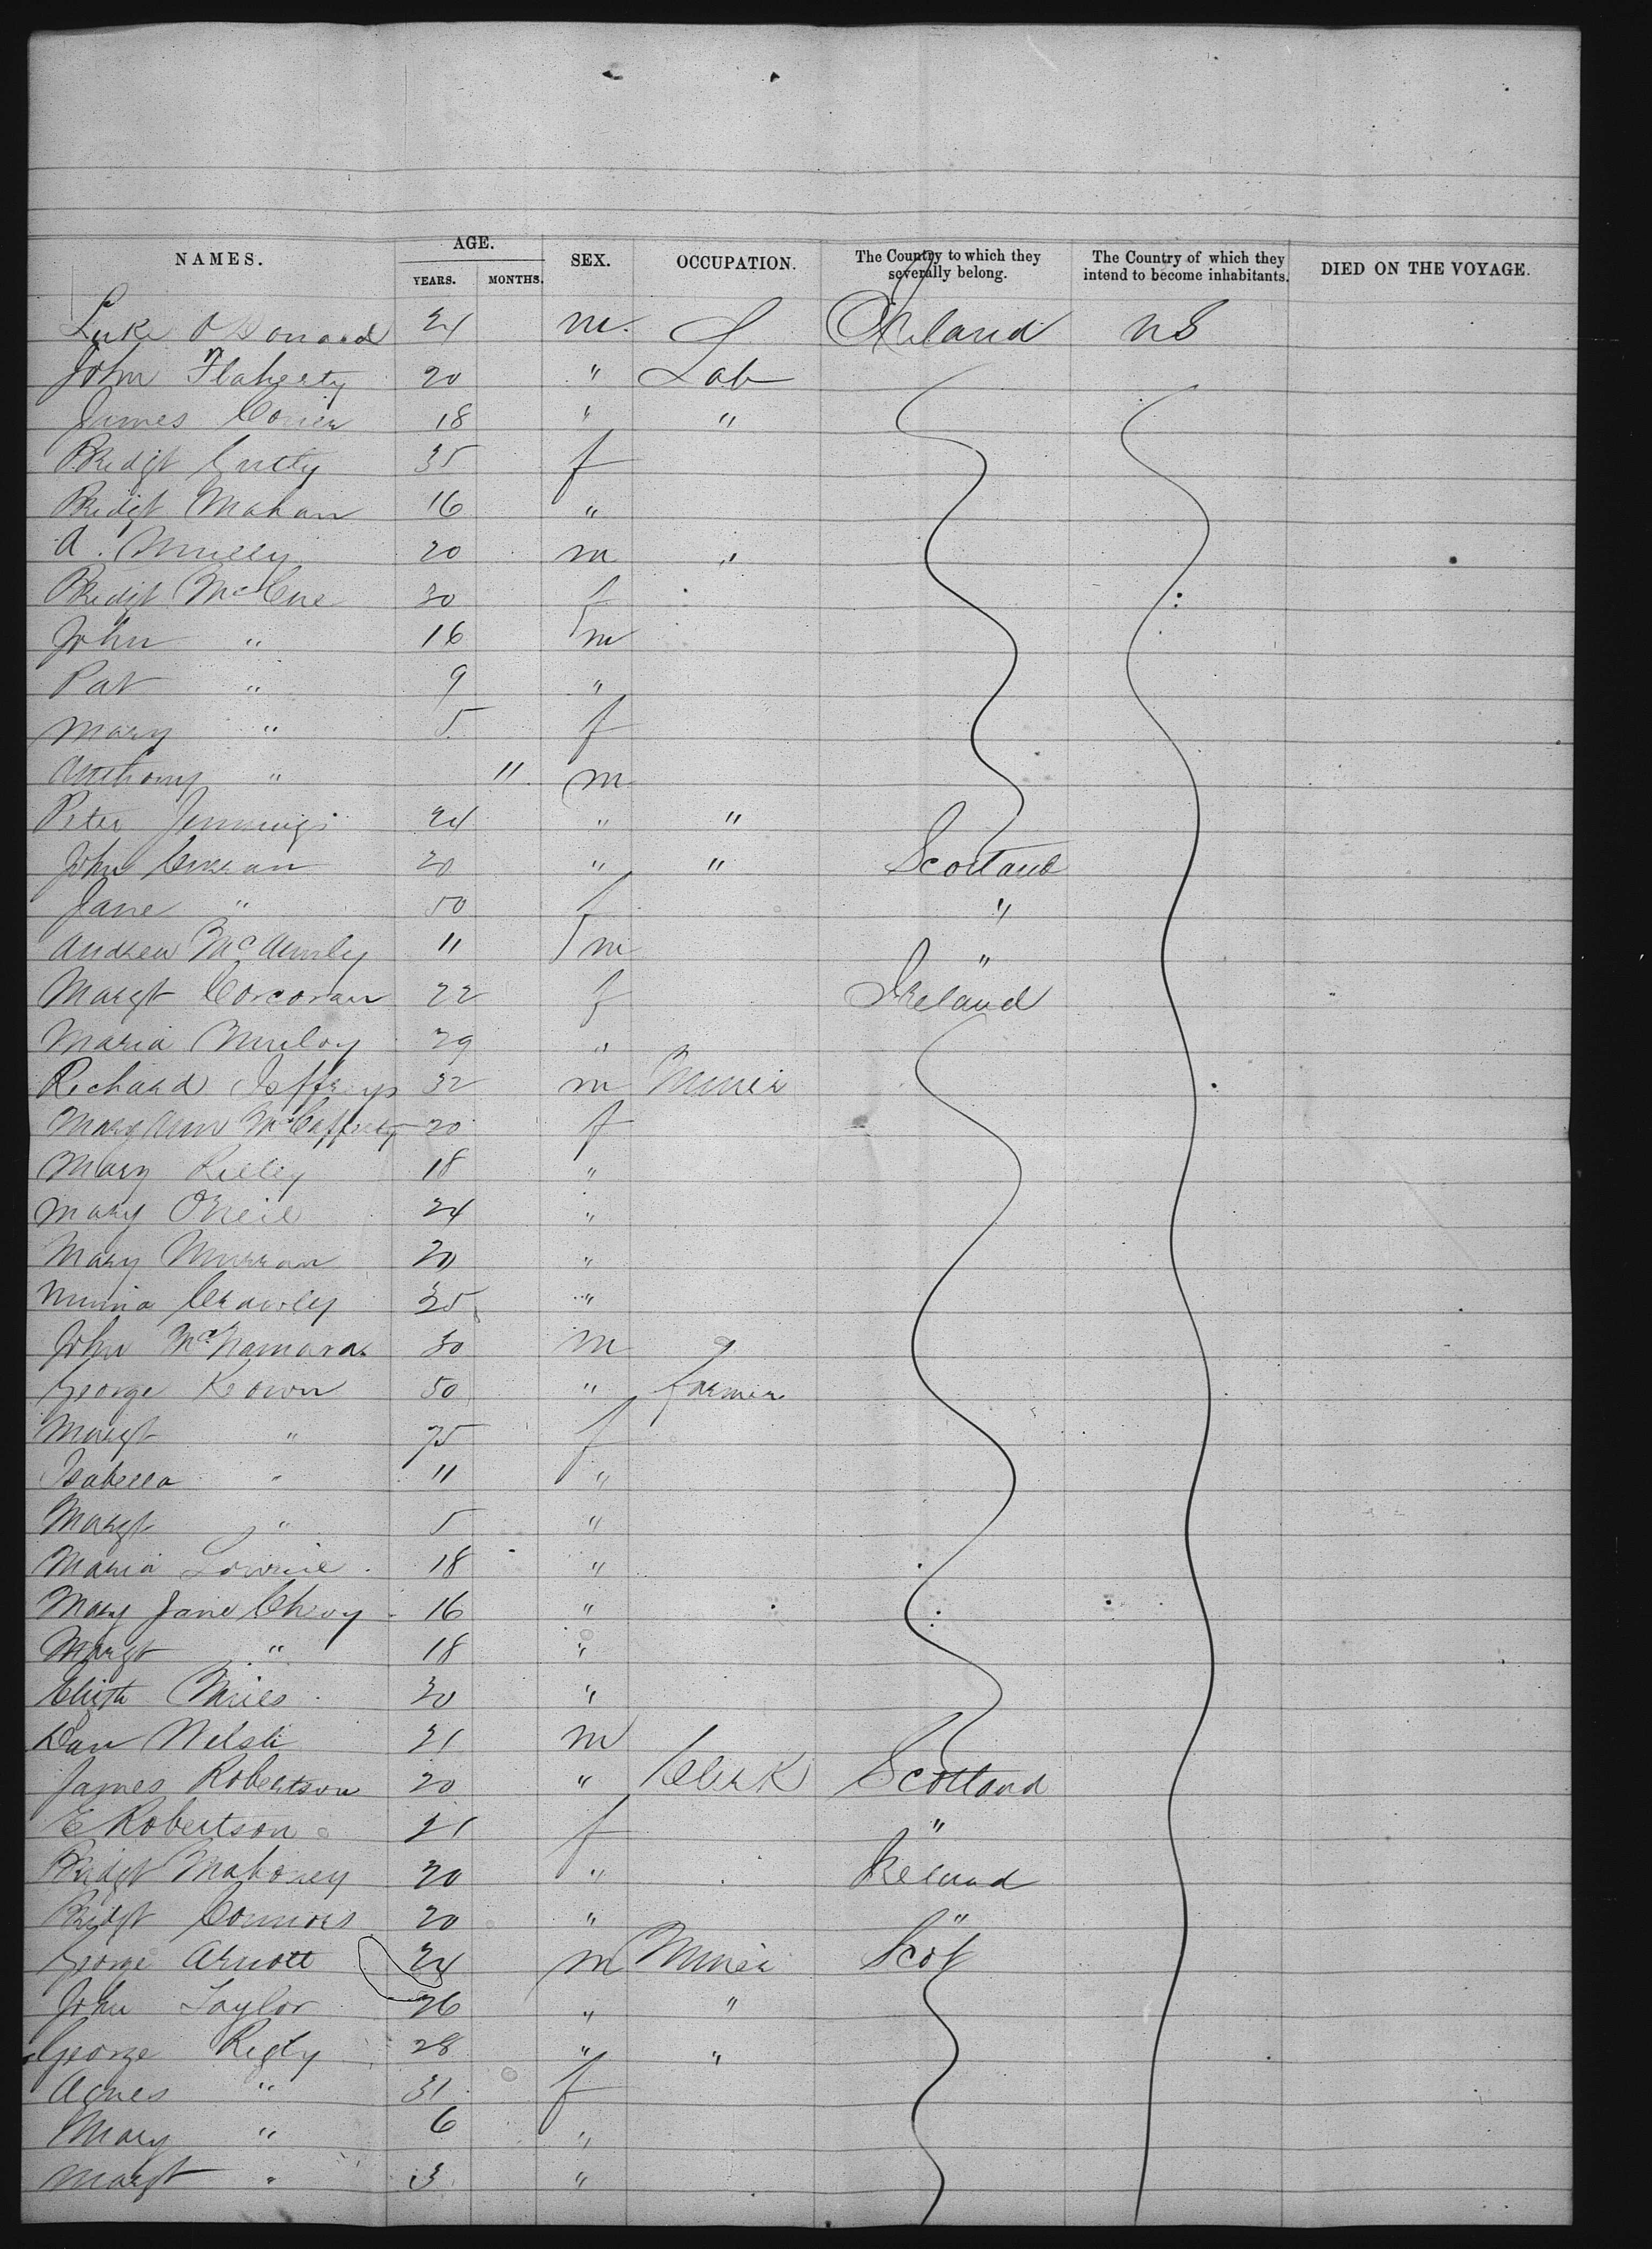 NAMES. AGE. YEARS. MONTHS. SEX. OCCUPATION. The Country to which they severally belong. The Country of which they intend to become inhabitants. DIED ON THE VOYAGE.
Luke 24 m. Ireland US
John Flaherty 20 " Lab
James 18 " "
Bridgt 35 f
Bridgt Mahan 16 "
A. 20 m "
Bridgt McCue 30 f
John " 16 m
Pat " 9 "
Mary " 5 f
Anthony " 11 m
Peter Jennings 24 " "
John Curran 20 " " Scotland
Jane " 50 f "
Andrew 11 m "
Margt Corcoran 22 f Ireland
Maria 29 "
Richard Jeffreys 32 m Miner
Mary Ann McCafferty 20 f
Mary 18 "
Mary O'Neil 24 "
Mary 20 "
Crawley "
John McNamara 30 m
George Keown 50 " Farmer
Margt " f
Isabella " 11 "
Margt " 5 "
Maria Lowrie 18 "
Mary Jane 16 "
Margt " 18 "
"
Dan Welsh 21 m
James Robertson 20 " Clerk Scotland
E Robertson 21 f "
Bridgt Mahoney 20 " Ireland
Bridgt Connors 20 " "
George Arnott 24 m Miner Scot
John Taylor 26 " "
George 28 " "
Agnes " 31 f
Mary " 6 "
Margt " 3 "